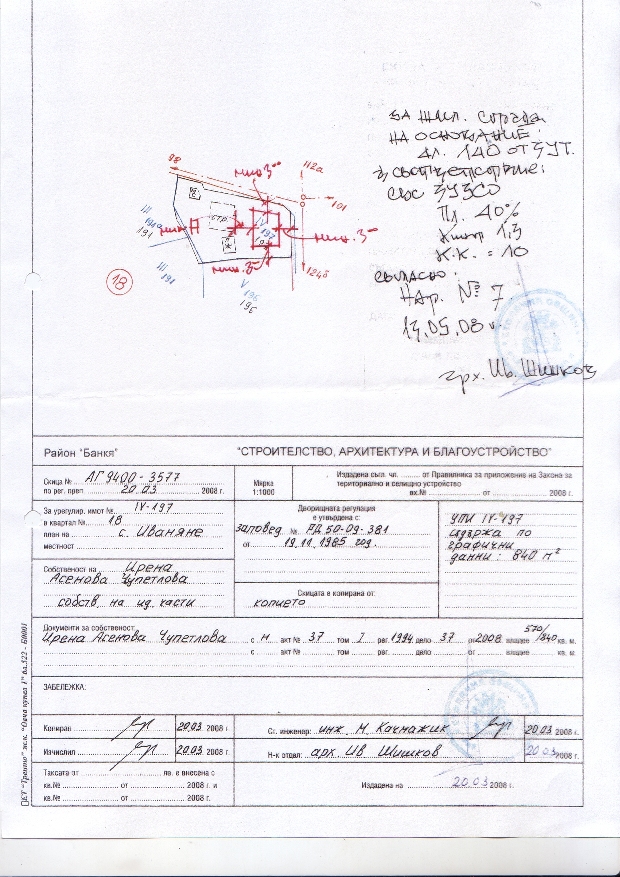 за жил. сграда
на основание:
чл. 140 от ЗУТ.
в съответствие:
със ЗУЗСО
Пл. 40%
Кинт 1,3
К.К. = 10
съгласно:
Нар. № 7
13.05.08 г.
арх. Ив. Шишков
98
112а
мин. 3
101
стр.
III
191
IV
197
мин. 3
мин. 3
III
191
V
196
196
124б
18
Район "Банкя" "СТРОИТЕЛСТВО, АРХИТЕКТУРА И БЛАГОУСТРОЙСТВО"
Скица № АГ 9400-3577
по рег. преп. 20.03. 2008 г.
Мярка
1:1000
Издадена съгл. чл. ........ от Правилника за приложение на Закона за
териториално и селищно устройство
вх.№ ........ от ........ 2008 г.
За урегулир. имот № IV-197
в квартал № 18
план на с. Иваняне
местност
Дворищната регулация
е утвърдена с:
заповед № РД 50-09-381
от 19.11.1985 год.
УПИ IV-197
съдържа по
графични
данни: 840 м²
Собственост на Ирена
Асенова Чупетлова
собств. на ид. части
Скицата е копирана от:
копието
Документи за собственост:
Ирена Асенова Чупетлова с н. акт № 37 том I рег. 1994 дело 37 от 2008. владее 570/840 кв. м.
с ........ акт № ........ том ........ рег. ........ дело ........ от ........ владее ........ кв. м.
ЗАБЕЛЕЖКА:
Копирал 20.03 2008 г
Ст. инженер: инж. М. Качнажик 20.03 2008 г.
Изчислил 20.03. 2008 г.
Н-к отдел: арх. Ив. Шишков 20.03 2008 г.
Таксата от ........ лв. е внесена с
кв.№ ........ от ........ 2008 г. и
кв.№ ........ от ........ 2008 г.
Издадена на 20.03 2008 г.